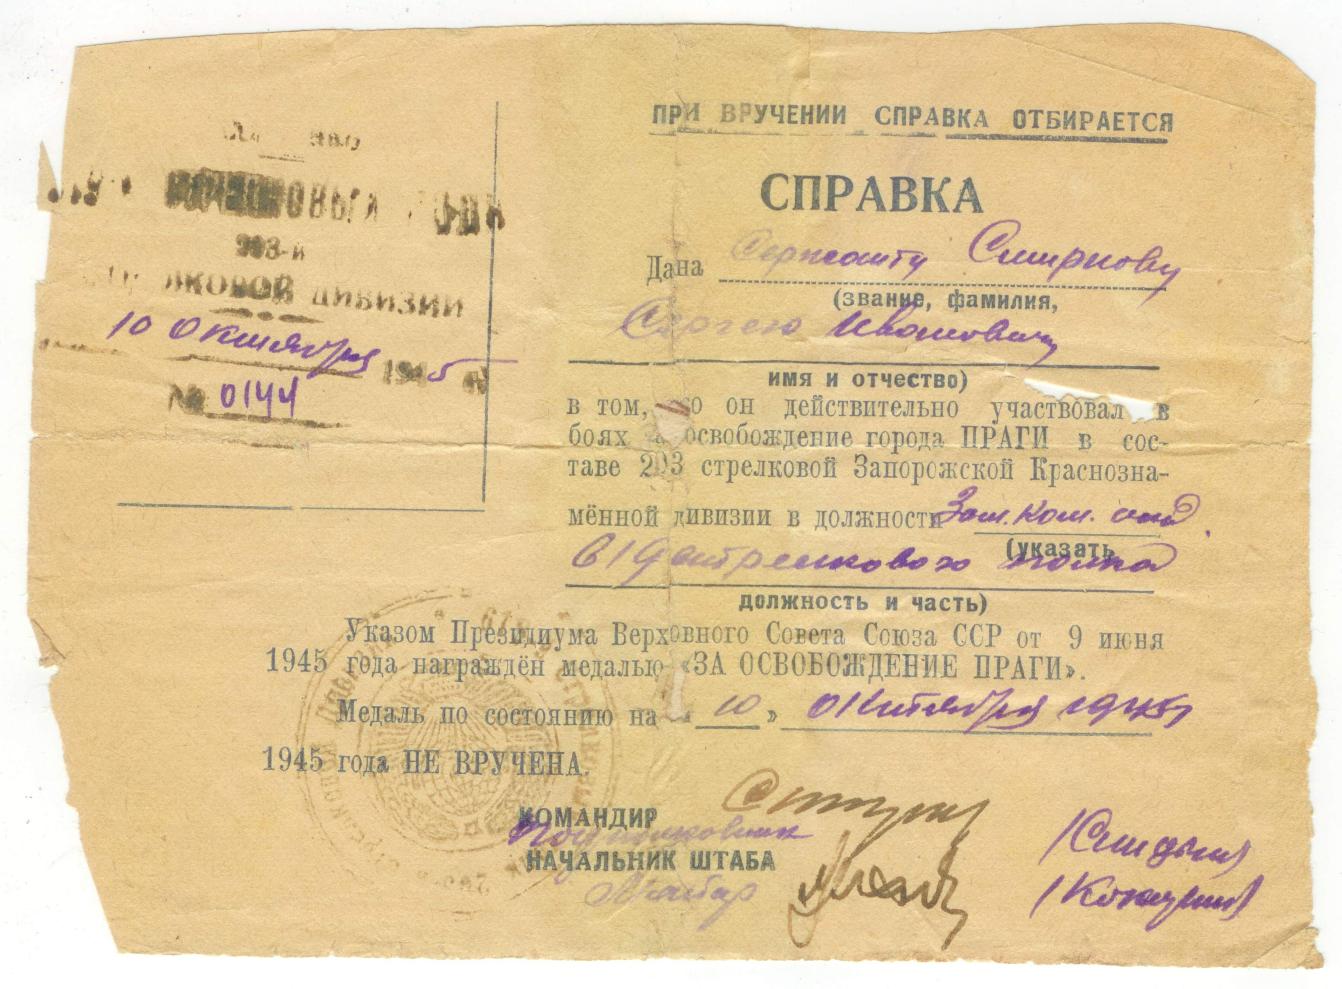 203-й
СТРЕЛКОВОЙ ДИВИЗИИ
10 Октября 1945
№ 0144
ПРИ ВРУЧЕНИИ СПРАВКА ОТБИРАЕТСЯ
СПРАВКА
Дана Сержанту Смирнову
(звание, фамилия,
Сергею Ивановичу
имя и отчество)
в том, что он действительно участвовал в
боях за освобождение города ПРАГИ в сос-
таве 203 стрелковой Запорожской Краснозна-
мённой дивизии в должности Зам. ком.
(указать
619 стрелкового полка
должность и часть)
Указом Президиума Верховного Совета Союза ССР от 9 июня
1945 года награждён медалью «ЗА ОСВОБОЖДЕНИЕ ПРАГИ».
Медаль по состоянию на «10» Октября 1945
1945 года НЕ ВРУЧЕНА.
КОМАНДИР
Подполковник
НАЧАЛЬНИК ШТАБА
Майор